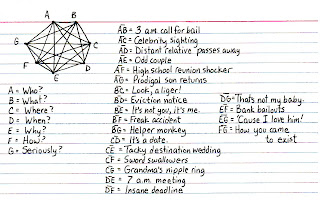 A
B
G
C
F
D
E
A = Who?
B = What?
C = Where?
D = When?
E = Why?
F = How?
G = Seriously?
AB = 3 am call for bail
AC = Celebrity sighting
AD = Distant relative passes away
AE = Odd couple
AF = High school reunion shocker
AG = Prodigal son returns
BC = Look, a liger!
BD = Eviction notice
BE = It's not you, it's me.
BF = Freak accident
BG = Helper monkey
CD = It's a date.
CE = Tacky destination wedding
CF = Sword swallowers
CG = Grandma's nipple ring
DE = 7 a.m. meeting
DF = Insane deadline
DG = That's not my baby.
EF = Bank bailouts
EG = 'Cause I love him!
FG = How you came
to exist